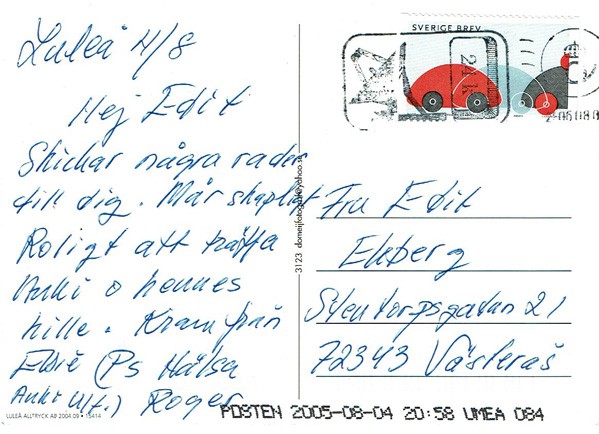 Luleå 4/8
Hej Edit
Skickar några rader
till dig. Mår skapligt
Roligt att träffa
Anki o hennes
kille. Kram från
(Ps Hälsa
Anki u/f.) Roger
SVERIGE BREV
Fru Edit
Ekberg
Stentorpsgatan 21
72343 Västerås
3123 domeijfotograf@yahoo.se
LULEÅ ALLTRYCK AB 2004.09 • 15414
POSTEN 2005-08-04 20:58 UMEA 084